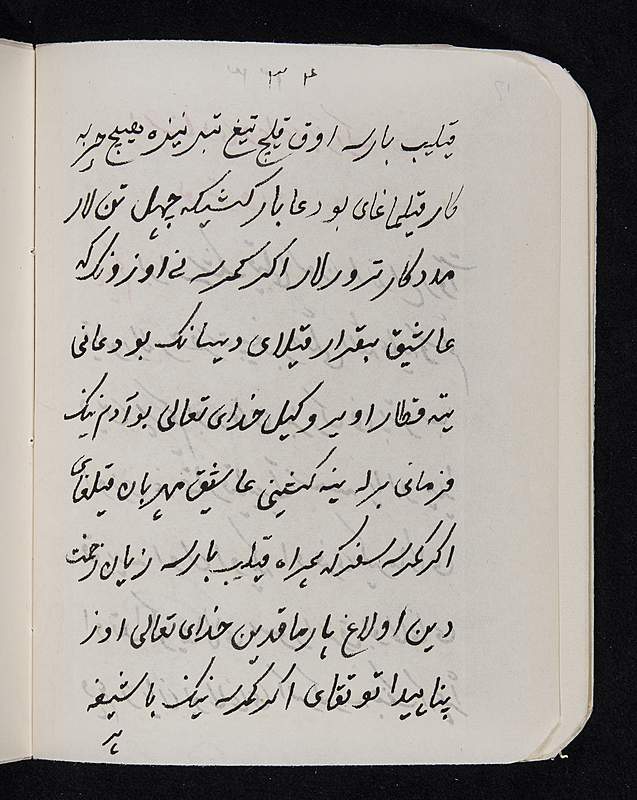 ۳۴
قیلیب بارسه اوق قلیچ تیغ تبر نیزه هیچ حربه
کار قیلماغای بو دعا بار کشیکه چهل تن لار
مددکار ترورلار اکر کمرسه نی اوزونکه
عاشیق بیقرار قیلای دیسانک بو دعانی
یته قطار اویر وکیل خدای تعالی بو آدم نیک
فرمانی برله ینه کیشینی عاشیق مهربان قیلغای
اکر کمرسه سفرکه همراه قیلیب بارسه زیان زحمت
دین اولاغ هارماقدین خدای تعالی اوز
پناهیدا توتقای اکر کمرسه نیک باشیغه
هر